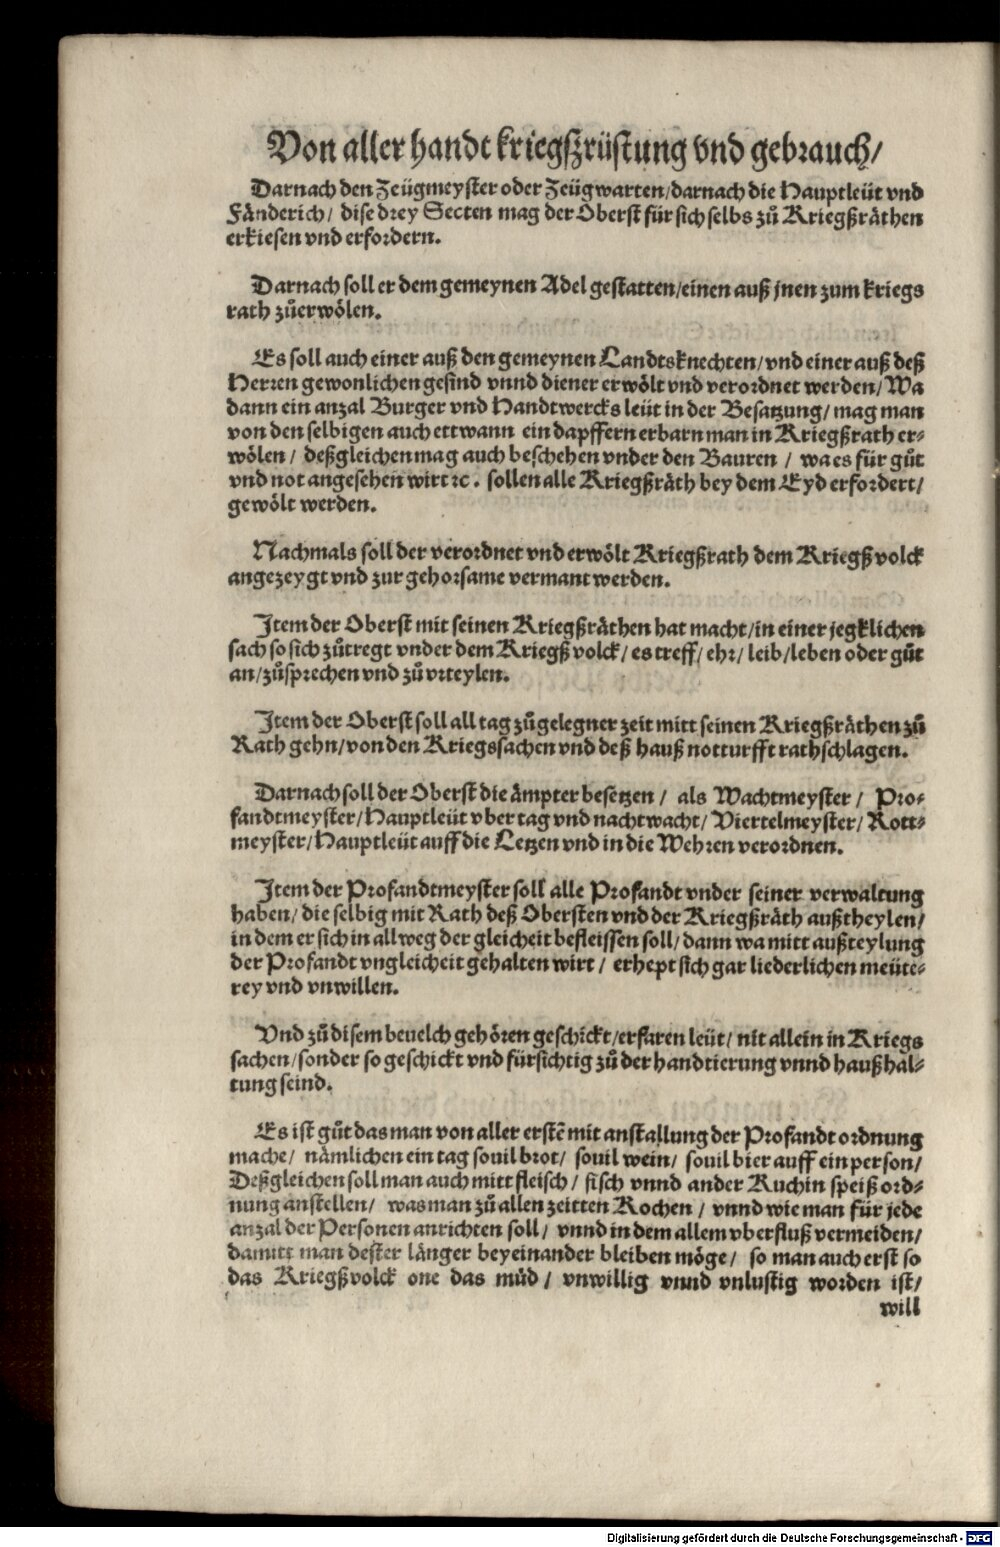 Von aller handt kriegßrüstung vnd gebrauch/
Darnach den Zeügmeyster oder Zeügwarten/darnach die Hauptleüt vnd
Fänderich/ dise drey Secten mag der Oberst für sich selbs zů Kriegßräthen
erkiesen vnd erfordern.
Darnach soll er dem gemeynen Adel gestatten/einen auß jnen zum kriegs
rath zůerwölen.
Es soll auch einer auß den gemeynen Landtsknechten/vnd einer auß deß
Herren gewonlichen gesind vnnd diener erwölt vnd verordnet werden/Wa
dann ein anzal Burger vnd Handtwercks leüt in der Besatzung/mag man
von den selbigen auch ettwann ein dapffern erbarn man in Kriegßrath er-
wölen/ deßgleichen mag auch beschehen vnder den Bauren / wa es für gůt
vnd not angesehen wirt ꝛc. sollen alle Kriegßräth bey dem Eyd erfordert/
gewölt werden.
Nachmals soll der verordnet vnd erwölt Kriegßrath dem Kriegßvolck
angezeygt vnd zur gehorsame vermant werden.
Item der Oberst mit seinen Kriegßräthen hat macht/in einer jegklichen
sach so sich zůtregt vnder dem Kriegßvolck/es treff/ehr/leib/leben oder gůt
an/zůsprechen vnd zů vrteylen.
Item der Oberst soll all tag zů gelegner zeit mitt seinen Kriegßräthen zů
Rath gehn/von den Kriegssachen vnd deß hauß notturfft rathschlagen.
Darnach soll der Oberst die ämpter besetzen / als Wachtmeyster / Pro-
fandtmeyster/Hauptleüt vber tag vnd nachtwacht/Viertelmeyster/Rott-
meyster/Hauptleüt auff die Letzen vnd in die Wehren verordnen.
Item der Profandtmeyster soll alle Profandt vnder seiner verwaltung
haben/die selbig mit Rath deß Obersten vnd der Kriegßräth außtheylen/
in dem er sich in allweg der gleicheit befleissen soll/dann wa mitt außteylung
der Profandt vngleicheit gehalten wirt / erhept sich gar liederlichen meüte-
rey vnd vnwillen.
Vnd zů disem beuelch gehören geschickt/erfaren leüt/ nit allein in Kriegs
sachen/sonder so geschickt vnd fürsichtig zů der handtierung vnnd haußhal-
tung seind.
Es ist gůt das man von aller erstē mit anstallung der Profandt ordnung
mache/ nämlichen ein tag souil brot/ souil wein/ souil bier auff ein person/
Deßgleichen soll man auch mitt fleisch/ fisch vnnd ander Kuchin speiß ord-
nung anstellen/ was man zů allen zeitten Kochen / vnnd wie man für jede
anzal der Personen anrichten soll/ vnnd in dem allem vberfluß vermeiden/
damitt man dester länger beyeinander bleiben möge/ so man auch erst so
das Kriegßvolck one das müd/ vnwillig vnnd vnlustig worden ist/
will
Digitalisierung gefördert durch die Deutsche Forschungsgemeinschaft - DFG